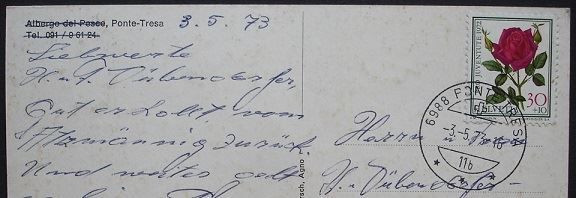 Albergo del Pesce, Ponte-Tresa
Tel. 091 / 9 61 24
3. 5. 73
Liebwerte
H. u. F. Dübendorfer,
Gut erholt vom
zurück.
Und weiter geht
Herrn u.
Dübendorfer
6988 PONTE TRESA
-3.-5.73-16
11b
PRO JUVENTUTE 1972
30
+10
HELVETIA